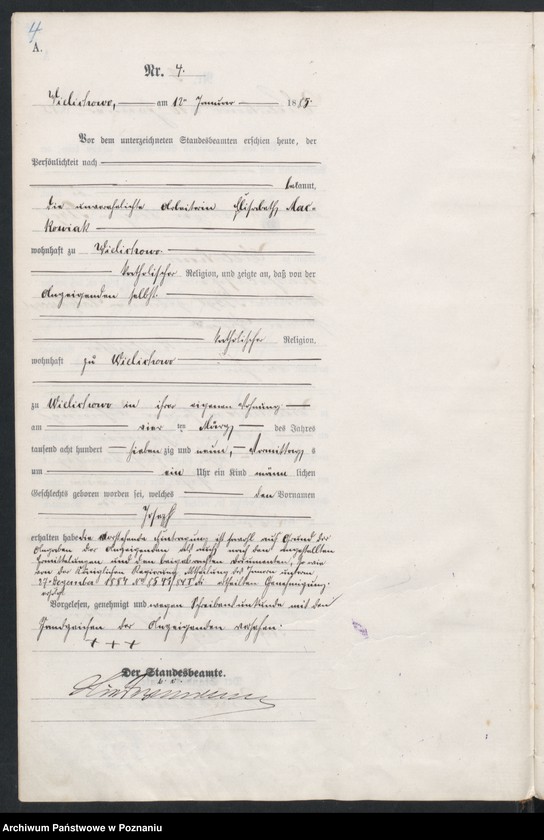 4
A.
Nr. 4.
Wielichowo, am 12ten Januar 1885.
Vor dem unterzeichneten Standesbeamten erschien heute, der
Persönlichkeit nach
bekannt,
die unverehelichte Arbeiterin Elisabeth Mac-
kowiak
wohnhaft zu Wielichowo
katholischer Religion, und zeigte an, daß von der
Anzeigenden selbst
katholischer Religion,
wohnhaft zu Wielichowo
zu Wielichowo in ihrer eigenen Wohnung
am vier ten März des Jahres
tausend acht hundert sieben zig und neun, Vormittags
um ein Uhr ein Kind männ lichen
Geschlechts geboren worden sei, welches den Vornamen
Joseph
erhalten habe. die vorstehende Eintragung ist sowohl auf Grund der
Angaben der Anzeigenden als auch nach den angestellten
Ermittelungen und den beigebrachten Dokumenten, so wie
von der Königlichen Regierung Abtheilung des Innern unterm
27. Dezember 1884 No ertheilten Genehmigung
erfolgt.
Vorgelesen, genehmigt und wegen Schreibensunkunde mit den
Handzeichen der Anzeigenden versehen:
+ + +
Der Standesbeamte.
Archiwum Państwowe w Poznaniu